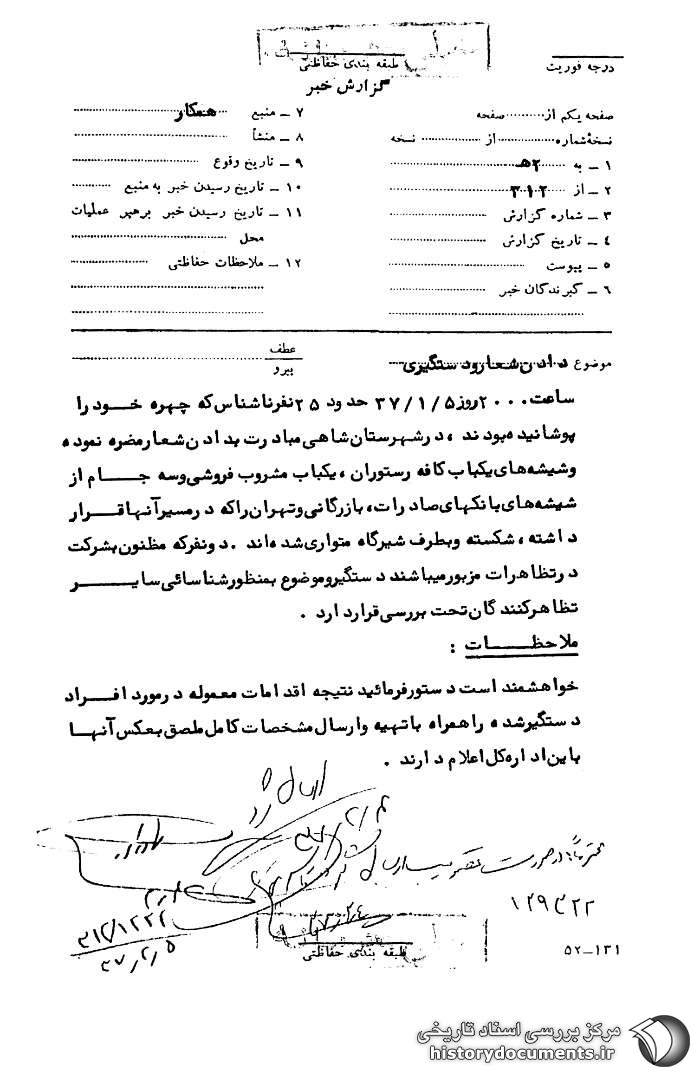 طبقه بندی حفاظتی
درجه فوریت
گزارش خبر
صفحه یکم از .......... صفحه
نسخه شماره .......... از .......... نسخه
۱ ــ به .......... ۲ هـ
۲ ــ از .......... ۳۱۲
۳ ــ شماره گزارش
۴ ــ تاریخ گزارش
۵ ــ پیوست
۶ ــ گیرندگان خبر
۷ ــ منبع .......... همکار
۸ ــ منشأ
۹ ــ تاریخ وقوع
۱۰ ــ تاریخ رسیدن خبر به منبع
۱۱ ــ تاریخ رسیدن خبر برهبر عملیات
محل
۱۲ ــ ملاحظات حفاظتی
موضوع دادن شعارود ستگیری
عطف
پیرو
ساعت ۲۰۰۰ روز ۳۷/۱/۵ حدود ۲۵ نفرناشناس که چهره خود را
پوشانیده بودند ، درشهرستان شاهی مبادرت بدادن شعارمضره نموده
وشیشه های یکباب کافه رستوران ، یکباب مشروب فروشی وسه جام از
شیشه های بانکهای صادرات، بازرگانی وتهران راکه درمسیرآنهاقرار
داشته ، شکسته وبطرف شیرگاه متواری شده اند . دونفرکه مظنون بشرکت
درتظاهرات مزبورمیباشند دستگیروموضوع بمنظورشناسائی سایر
تظاهرکنندگان تحت بررسی قرارد ارد .
ملاحظات :
خواهشمند است دستورفرمائید نتیجه اقدامات معموله درمورد افراد
دستگیرشده راهمراه باتهیه وارسال مشخصات کامل ملصق بعکس آنها
باین اداره کل اعلام دارند .
ارسال شد
۳۷/۲/۴
محترماً؛ در صورت تصویب ارسال
۱۲۹۳۲۲
۳۱۲/۱۲۲۲
۳۷/۲/۵
طبقه بندی حفاظتی
۵۲ــ۱۳۱
مرکز بررسی اسناد تاریخی
historydocuments.ir